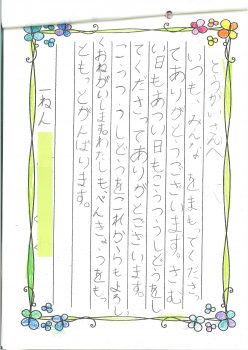 とうかいさんへ
いつも、みんなをまもってくださっ
てありがとうございます。さむ
い日もあつい日もこうつうしどうをし
てくださってありがとございます。
こうつうしどうをこれからもよろし
くおねがいします。わたしも、べんきょうをもっ
ともっとがんばります。
一ねん